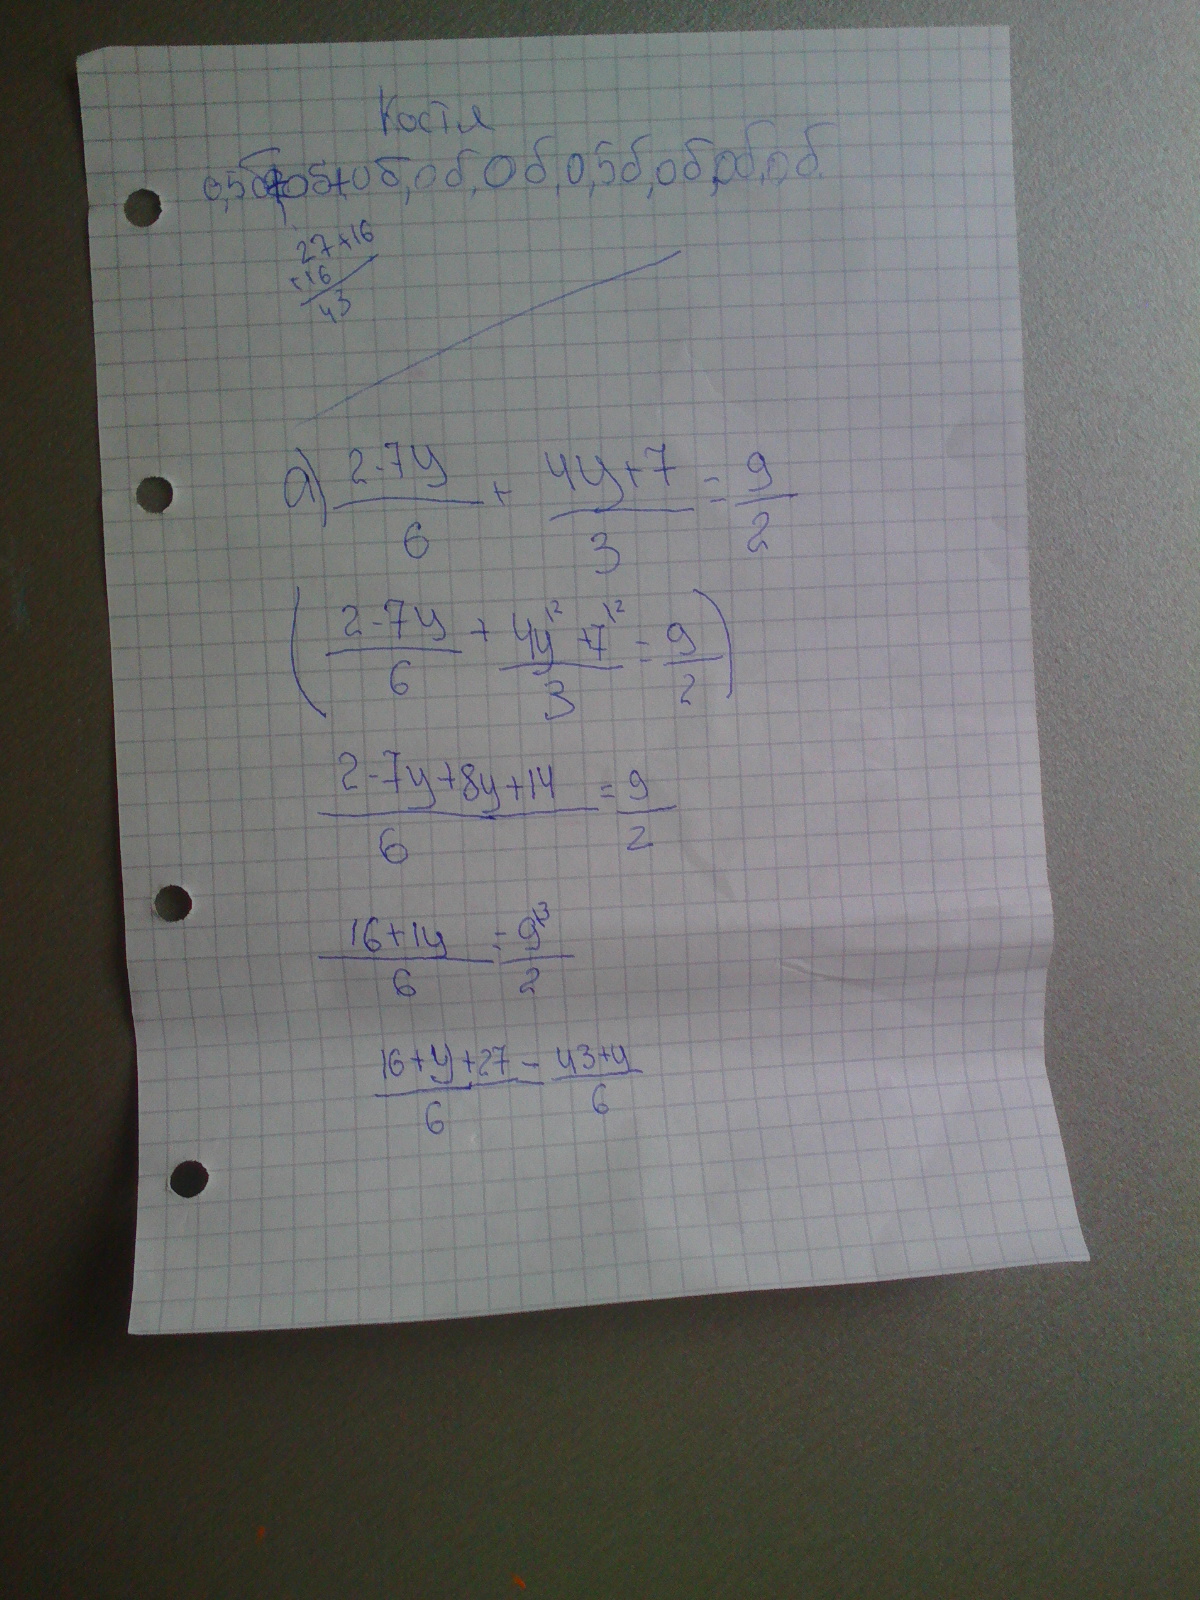 Костя
0,5б+0б+0б,0б,0б,0,5б,0б,0б,0б.
27+16
+16
43
а) 2-7y/6 + 4y+7/3 = 9/2
(2-7y/6 + 4y|² +7|²/3 = 9/2)
2-7y+8y+14/6 = 9/2
16+1y/6 = 9|³/2
16+y+27/6 = 43+y/6